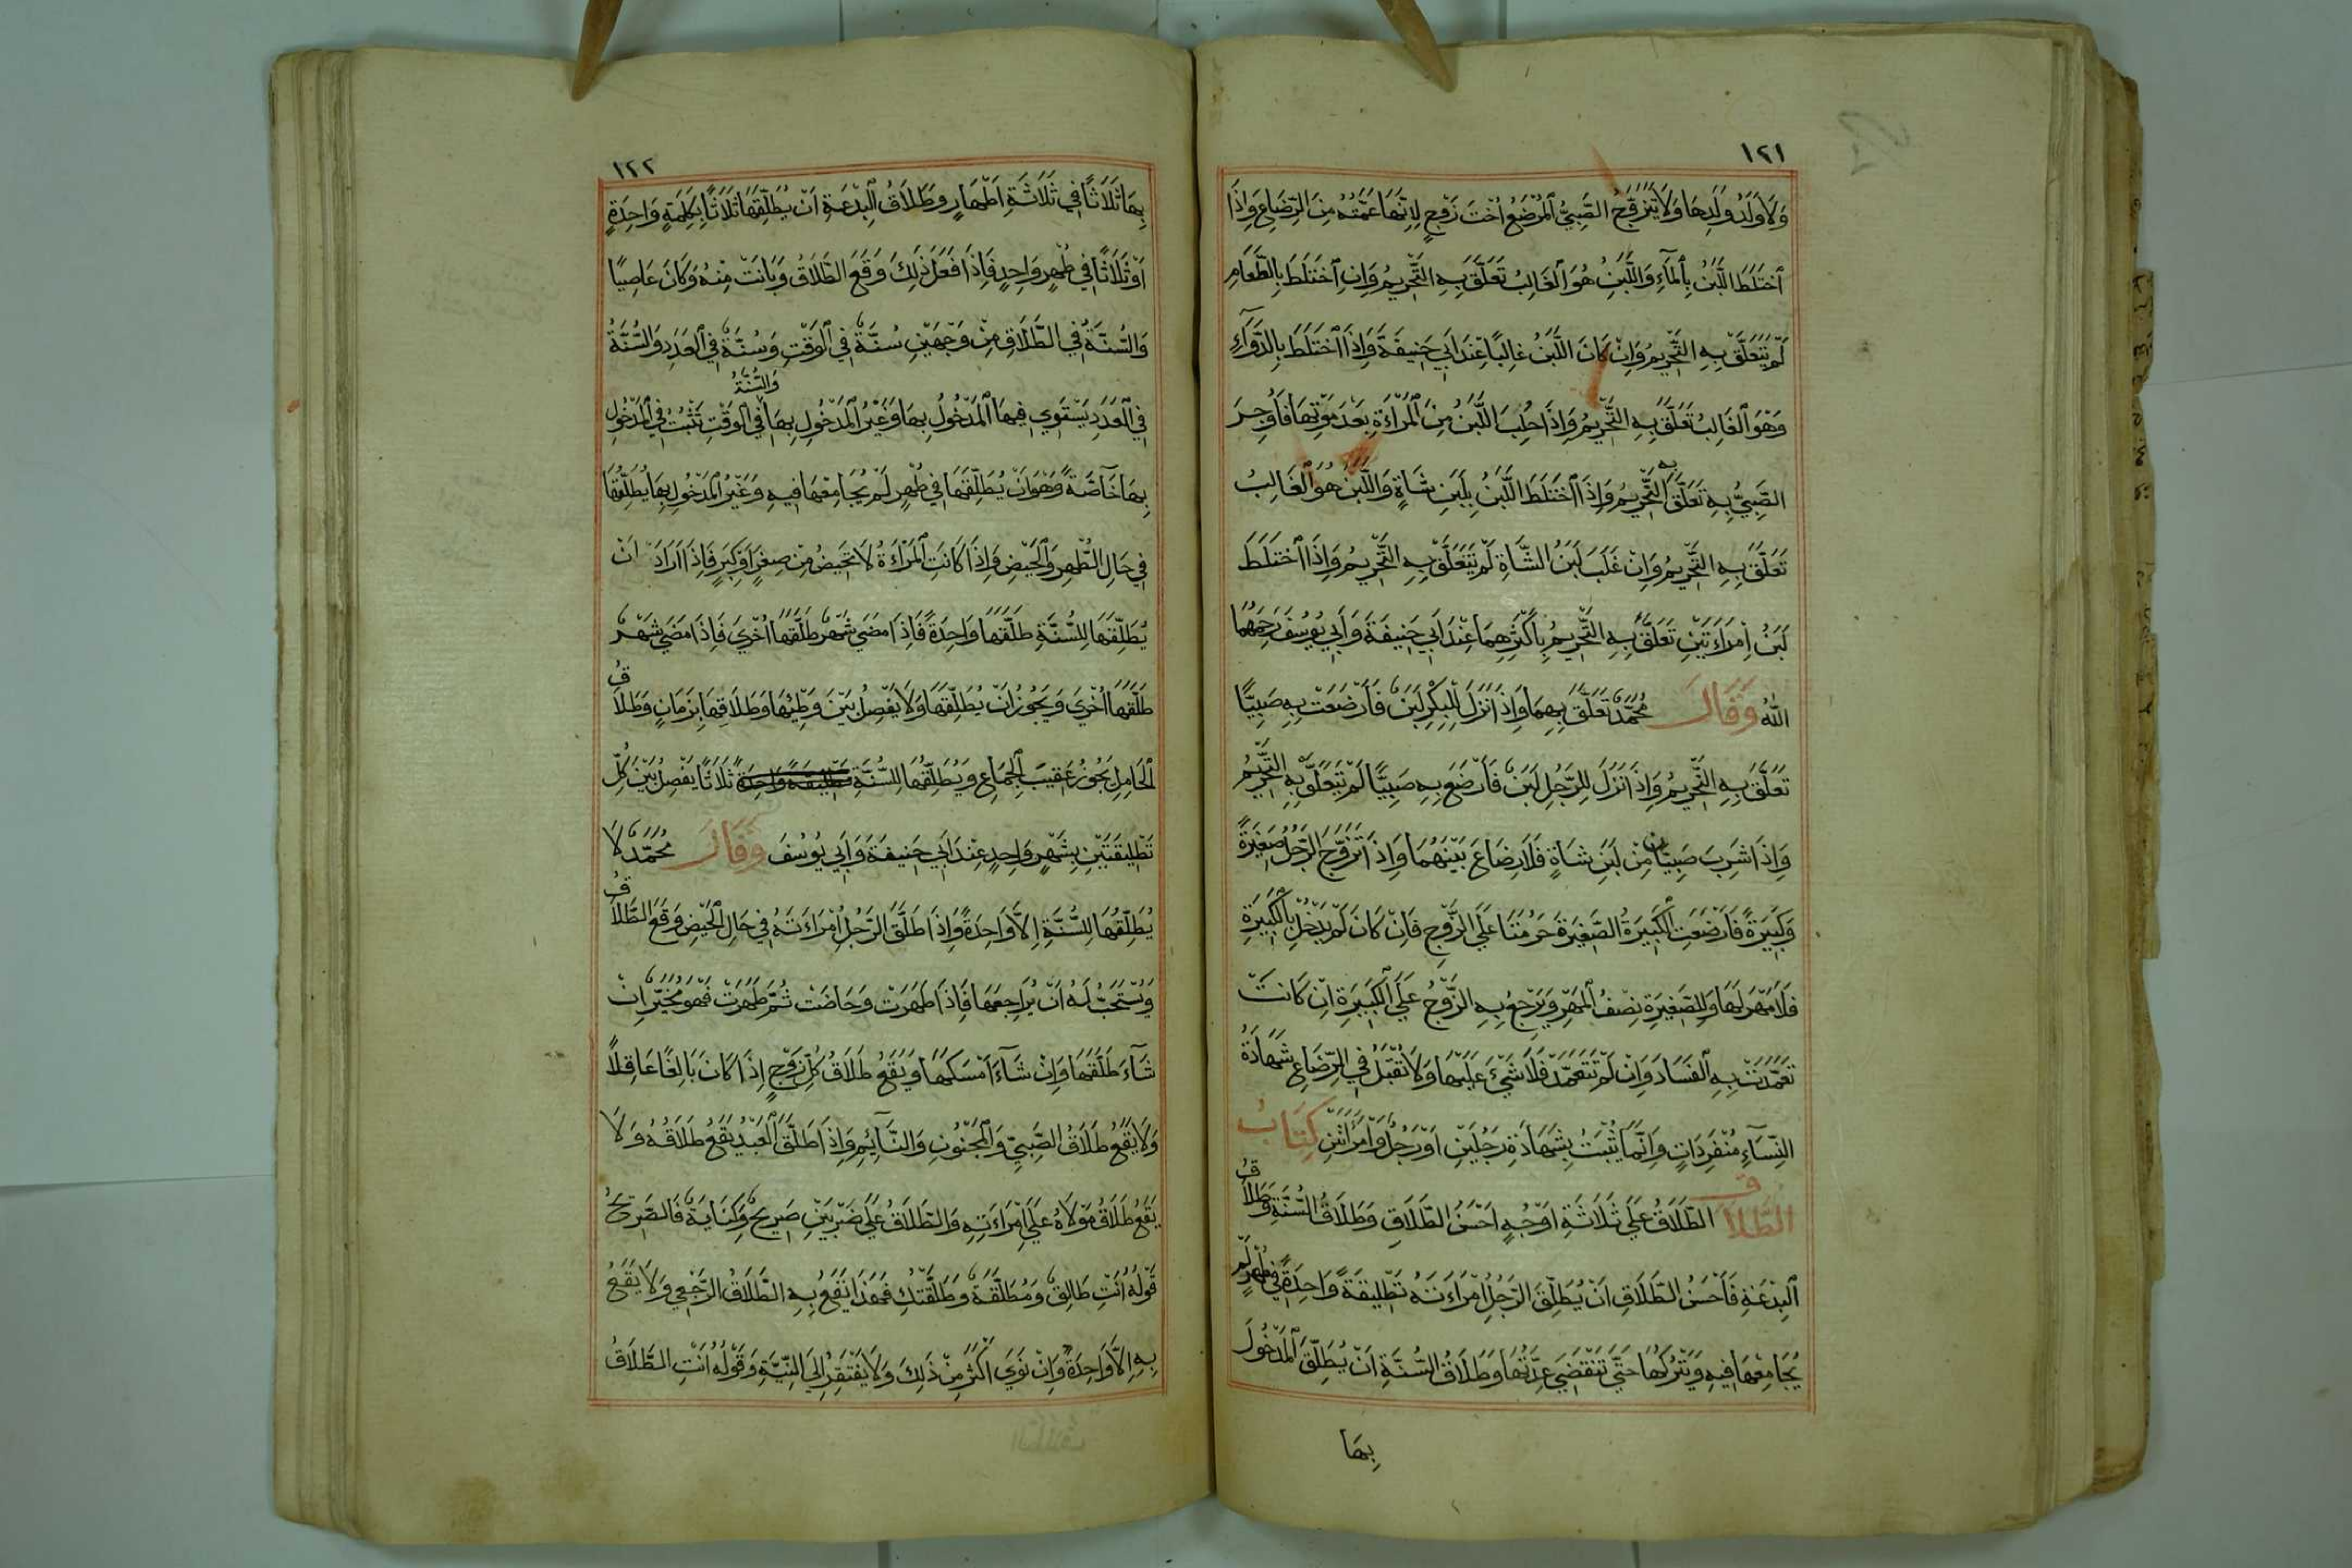 ١٢١
وَلَا وَلَدُ وَلَدِهَا وَلَا يَتَزَوَّجُ الصَّبِيُّ الْمُرْضَعُ اُخْتَ زَوْجٍ لِاَنَّهَا عَمَّتُهُ مِنَ الرِّضَاعِ وَاِذَا
اخْتَلَطَ اللَّبَنُ بِالْمَآءِ وَاللَّبَنُ هُوَ الْغَالِبُ تَعَلَّقَ بِهِ التَّحْرِيمُ وَاِنِ اخْتَلَطَ بِالطَّعَامِ
لَمْ يَتَعَلَّقْ بِهِ التَّحْرِيمُ وَاِنْ كَانَ اللَّبَنُ غَالِبًا عِنْدَ اَبِي حَنِيفَةَ وَاِذَا اخْتَلَطَ بِالدَّوَآءِ
وَهُوَ الْغَالِبُ تَعَلَّقَ بِهِ التَّحْرِيمُ وَاِذَا حُلِبَ اللَّبَنُ مِنَ الْمَرْاَةِ بَعْدَ مَوْتِهَا فَاُوجِرَ
الصَّبِيُّ بِهِ تَعَلَّقَ بِهِ التَّحْرِيمُ وَاِذَا اخْتَلَطَ اللَّبَنُ بِلَبَنِ شَاةٍ وَاللَّبَنُ هُوَ الْغَالِبُ
تَعَلَّقَ بِهِ التَّحْرِيمُ وَاِنْ غَلَبَ لَبَنُ الشَّاةِ لَمْ يَتَعَلَّقْ بِهِ التَّحْرِيمُ وَاِذَا اخْتَلَطَ
لَبَنُ اِمْرَاَتَيْنِ تَعَلَّقَ بِهِ التَّحْرِيمُ بِاَكْثَرِهِمَا عِنْدَ اَبِي حَنِيفَةَ وَاَبِي يُوسُفَ رَحِمَهُمَا
اللهُ وَقَالَ مُحَمَّدٌ تَعَلَّقَ بِهِمَا وَاِذَا نَزَلَ لِلْبِكْرِ لَبَنٌ فَاَرْضَعَتْ بِهِ صَبِيًّا
تَعَلَّقَ بِهِ التَّحْرِيمُ وَاِذَا نَزَلَ لِلرَّجُلِ لَبَنٌ فَاَرْضَعَ بِهِ صَبِيًّا لَمْ يَتَعَلَّقْ بِهِ التَّحْرِيمُ
وَاِذَا شَرِبَ صَبِيَّانِ مِنْ لَبَنِ شَاةٍ فَلَا رِضَاعَ بَيْنَهُمَا وَاِذَا تَزَوَّجَ الرَّجُلُ صَغِيْرَةً
وَكَبِيْرَةً فَاَرْضَعَتِ الْكَبِيْرَةُ الصَّغِيْرَةَ حَرُمَتَا عَلَى الزَّوْجِ فَاِنْ كَانَ لَمْ يَدْخُلْ بِالْكَبِيْرَةِ
فَلَا مَهْرَ لَهَا وَلِلصَّغِيْرَةِ نِصْفُ الْمَهْرِ وَيَرْجِعُ بِهِ الزَّوْجُ عَلَى الْكَبِيْرَةِ اِنْ كَانَتْ
تَعَمَّدَتْ بِهِ الْفَسَادَ وَاِنْ لَمْ تَتَعَمَّدْ فَلَا شَيْئَ عَلَيْهَا وَلَا تُقْبَلُ فِي الرِّضَاعِ شَهَادَةُ
النِّسَآءِ مُنْفَرِدَاتٍ وَاِنَّمَا يُثْبَتُ بِشَهَادَةِ رَجُلَيْنِ اَوْ رَجُلٍ وَامْرَاَتَيْنِ كِتَابُ
الطَّلَاقِ الطَّلَاقُ عَلَى ثَلَاثَةِ اَوْجُهٍ اَحْسَنُ الطَّلَاقِ وَطَلَاقُ السُّنَّةِ وَطَلَاقُ
الْبِدْعَةِ فَاَحْسَنُ الطَّلَاقِ اَنْ يُطَلِّقَ الرَّجُلُ امْرَاَتَهُ تَطْلِيقَةً وَاحِدَةً فِي طُهْرٍ لَمْ
يُجَامِعْهَا فِيهِ وَيَتْرُكَهَا حَتَّى تَنْقَضِيَ عِدَّتُهَا وَطَلَاقُ السُّنَّةِ اَنْ يُطَلِّقَ الْمَدْخُولَ
بِهَا
١٢٢
بِهَا ثَلَاثًا فِي ثَلَاثَةِ اَطْهَارٍ وَطَلَاقُ الْبِدْعَةِ اَنْ يُطَلِّقَهَا ثَلَاثًا بِكَلِمَةٍ وَاحِدَةٍ
اَوْ ثَلَاثًا فِي طُهْرٍ وَاحِدٍ فَاِذَا فَعَلَ ذَلِكَ وَقَعَ الطَّلَاقُ وَبَانَتْ مِنْهُ وَكَانَ عَاصِيًا
وَالسُّنَّةُ فِي الطَّلَاقِ مِنْ وَجْهَيْنِ سُنَّةٌ فِي الْوَقْتِ وَسُنَّةٌ فِي الْعَدَدِ وَالسُّنَّةُ
فِي الْعَدَدِ يَسْتَوِي فِيهَا الْمَدْخُولُ بِهَا وَغَيْرُ الْمَدْخُولِ بِهَا وَالسُّنَّةُ فِي الْوَقْتِ تَثْبُتُ فِي الْمَدْخُولِ
بِهَا خَآصَّةً وَهُوَ اَنْ يُطَلِّقَهَا فِي طُهْرٍ لَمْ يُجَامِعْهَا فِيهِ وَغَيْرُ الْمَدْخُولِ بِهَا يُطَلِّقُهَا
فِي حَالِ الطُّهْرِ وَالْحَيْضِ وَاِذَا كَانَتِ الْمَرْاَةُ لَا تَحِيضُ مِنْ صِغَرٍ اَوْ كِبَرٍ فَاِذَا اَرَادَ اَنْ
يُطَلِّقَهَا لِلسُّنَّةِ طَلَّقَهَا وَاحِدَةً فَاِذَا مَضَى شَهْرٌ طَلَّقَهَا اُخْرَى فَاِذَا مَضَى شَهْرٌ
طَلَّقَهَا اُخْرَى وَيَجُوزُ اَنْ يُطَلِّقَهَا وَلَا يَفْصِلُ بَيْنَ وَطْئِهَا وَطَلَاقِهَا بِزَمَانٍ وَطَلَاقُ
الْحَامِلِ يَجُوزُ عَقِيبَ الْجِمَاعِ وَيُطَلِّقُهَا لِلسُّنَّةِ تَطْلِيقَةً وَاحِدَةً ثَلَاثًا يَفْصِلُ بَيْنَ كُلِّ
تَطْلِيقَتَيْنِ بِشَهْرٍ وَاحِدٍ عِنْدَ اَبِي حَنِيفَةَ وَاَبِي يُوسُفَ وَقَالَ مُحَمَّدٌ لَا
يُطَلِّقُهَا لِلسُّنَّةِ اِلَّا وَاحِدَةً وَاِذَا طَلَّقَ الرَّجُلُ اِمْرَاَتَهُ فِي حَالِ الْحَيْضِ وَقَعَ الطَّلَاقُ
وَيُسْتَحَبُّ لَهُ اَنْ يُرَاجِعَهَا فَاِذَا طَهُرَتْ وَحَاضَتْ ثُمَّ طَهُرَتْ فَهُوَ مُخَيَّرٌ اِنْ
شَآءَ طَلَّقَهَا وَاِنْ شَآءَ اَمْسَكَهَا وَيَقَعُ طَلَاقُ كُلِّ زَوْجٍ اِذَا كَانَ بَالِغًا عَاقِلًا
وَلَا يَقَعُ طَلَاقُ الصَّبِيِّ وَالْمَجْنُونِ وَالنَّآئِمِ وَاِذَا طَلَّقَ الْعَبْدُ يَقَعُ طَلَاقُهُ وَلَا
يَقَعُ طَلَاقُ مَوْلَاهُ عَلَى اِمْرَاَتِهِ وَالطَّلَاقُ عَلَى ضَرْبَيْنِ صَرِيحٌ وَكِنَايَةٌ فَالصَّرِيحُ
قَوْلُهُ اَنْتِ طَالِقٌ وَمُطَلَّقَةٌ وَطَلَّقْتُكِ فَهَذَا يَقَعُ بِهِ الطَّلَاقُ الرَّجْعِي وَلَا يَقَعُ
بِهِ اِلَّا وَاحِدَةٌ وَاِنْ نَوَى اَكْثَرَ مِنْ ذَلِكَ وَلَا يَفْتَقِرُ اِلَى النِّيَّةِ وَقَوْلُهُ اَنْتِ الطَّلَاقُ